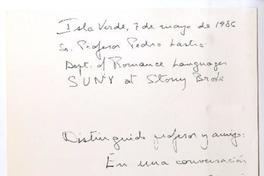 Isla Verde, 7 de mayo de 1986
Sr. Profesor Pedro Lastra
Dept. of Romance Languages
SUNY at Stony Brook
Distinguido profesor y amigo:
En una conversación